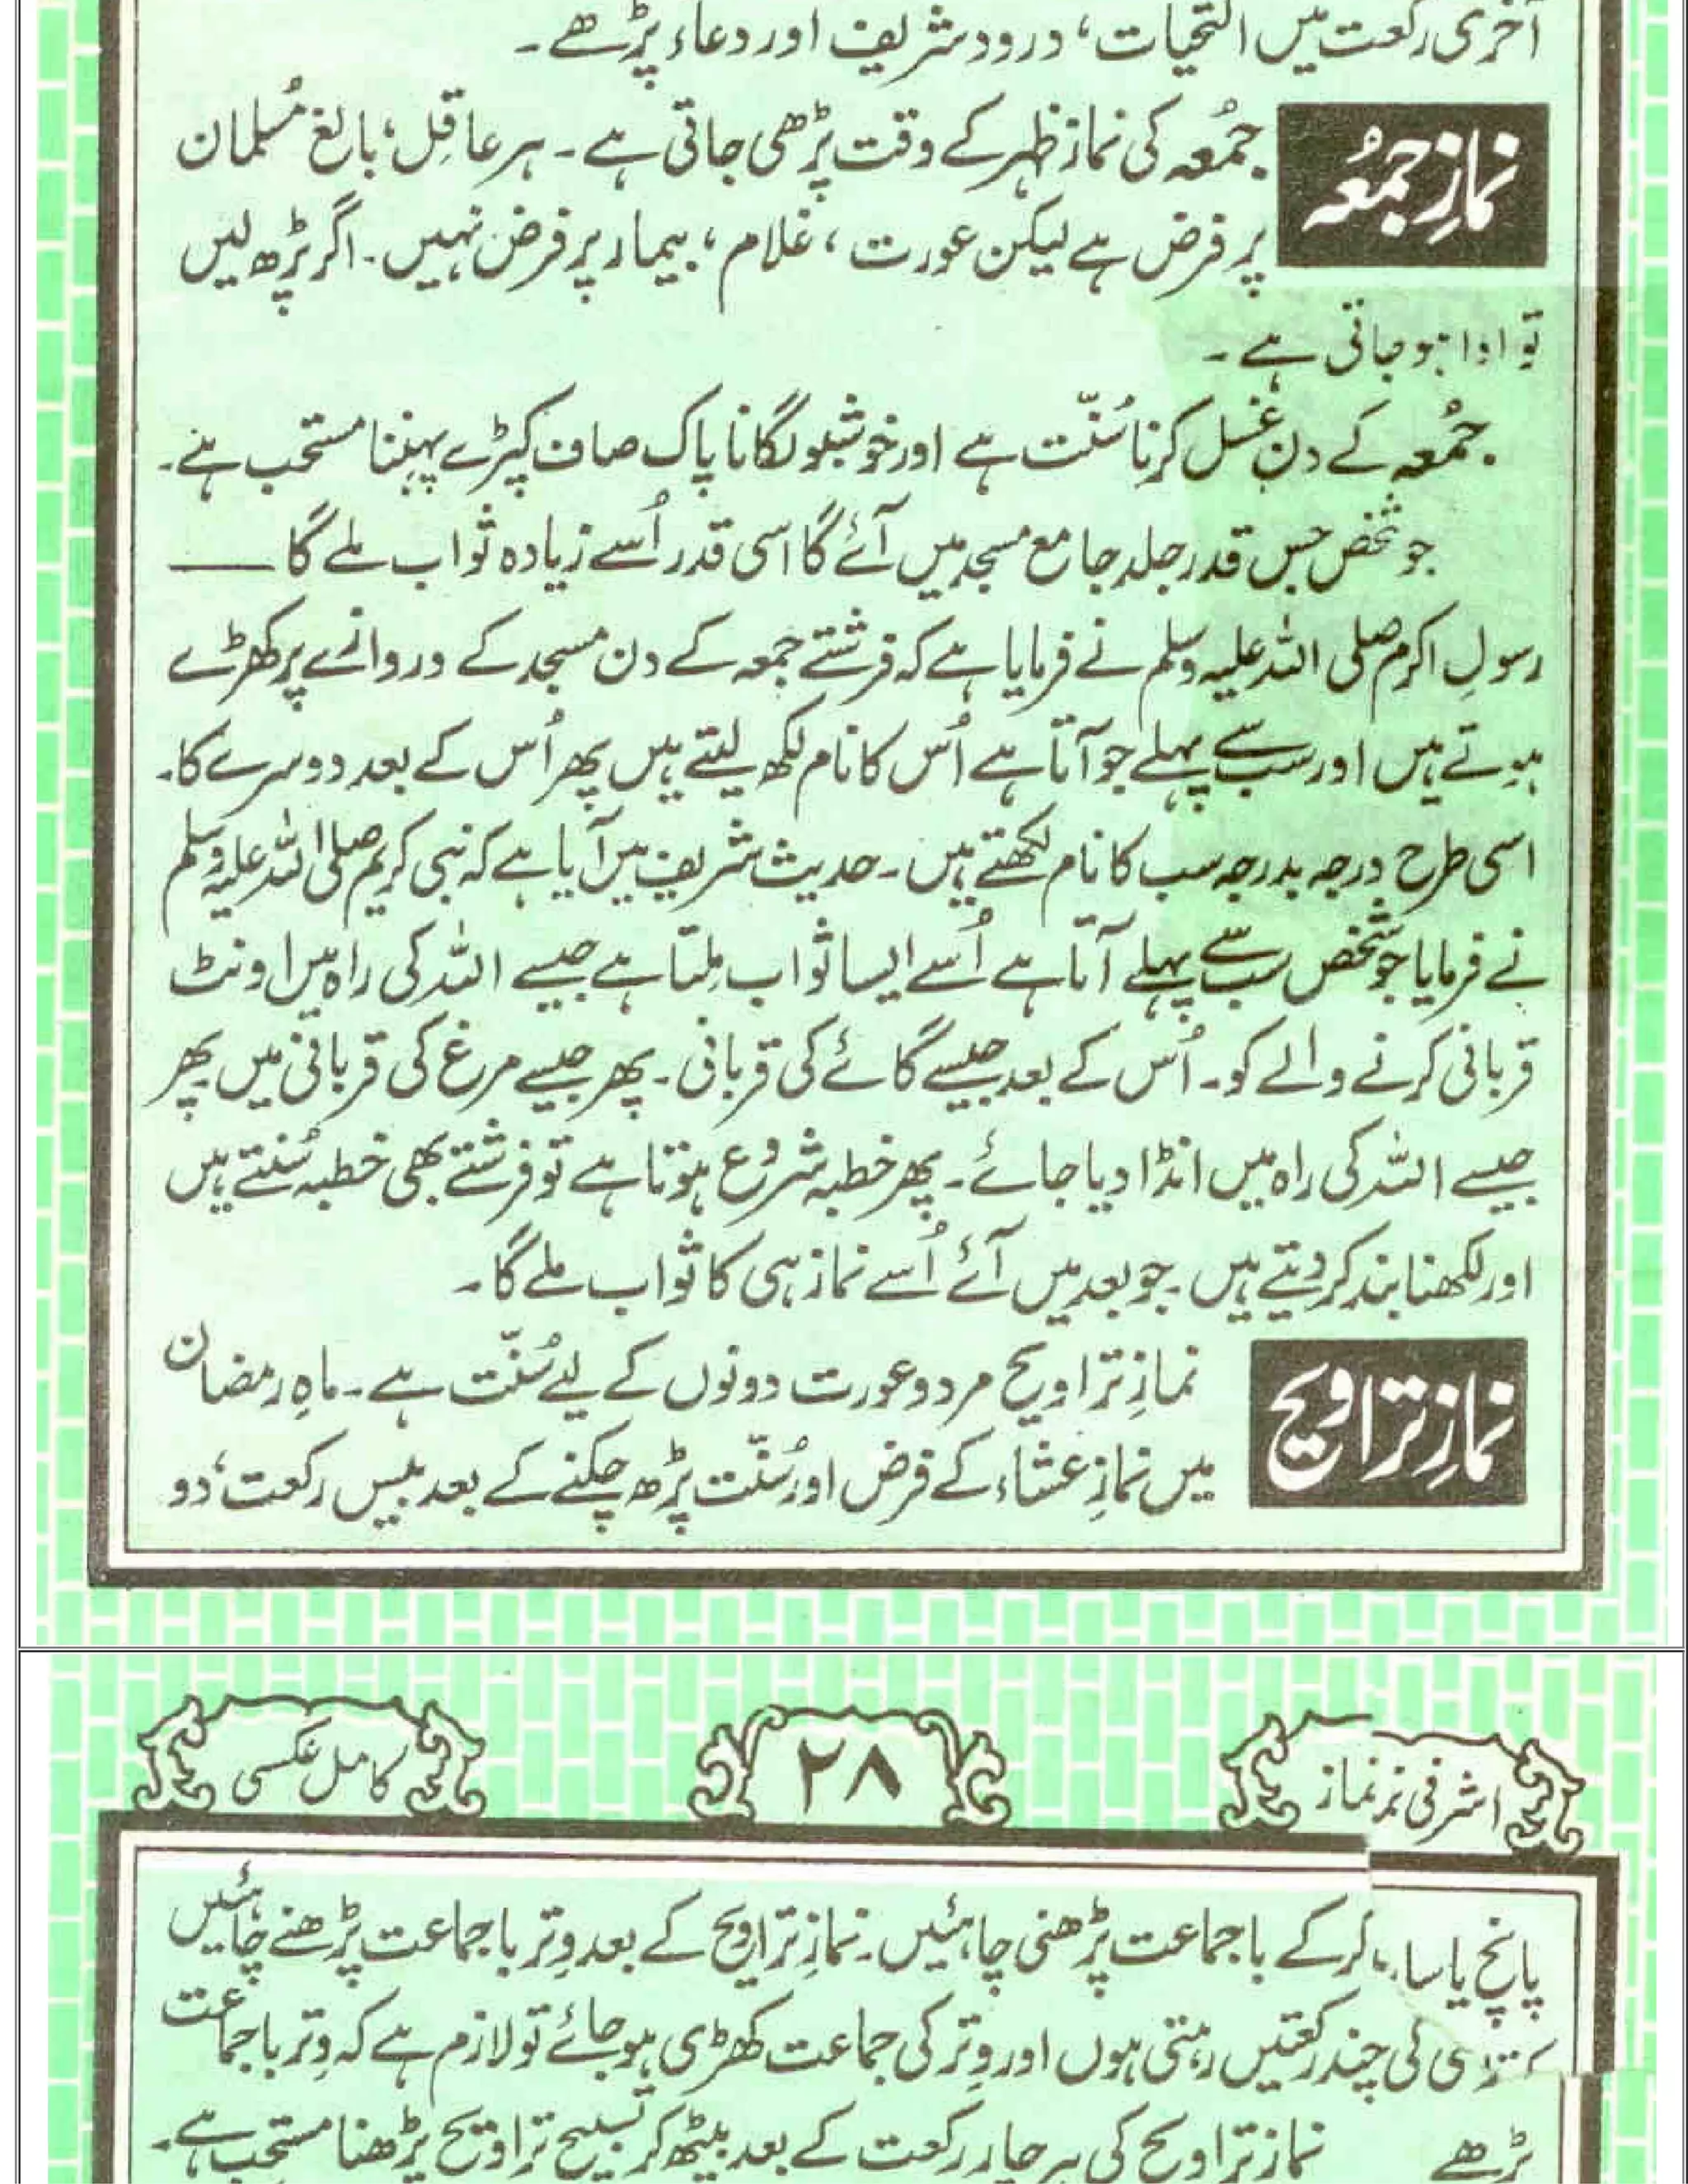 آخری رکعت میں التحیات، درود شریف اور دعاء پڑھے۔
نمازِ جمُعہ
جمُعہ کی نماز ظہر کے وقت پڑھی جاتی ہے۔ ہر عاقِل، بالغ مُسلمان
پر فرض ہے لیکن عورت، غلام، بیمار پر فرض نہیں۔ اگر پڑھ لیں
تو ادا ہو جاتی ہے۔
جمُعہ کے دن غسل کرنا سُنّت ہے اور خوشبو لگانا پاک صاف کپڑے پہننا مستحب ہے۔
جو شخص جس قدر جلد جامع مسجد میں آئے گا اسی قدر اُسے زیادہ ثواب ملے گا ——
رسولِ اکرم صلی اللہ علیہ وسلم نے فرمایا ہے کہ فرشتے جمعہ کے دن مسجد کے دروازے پر کھڑے
ہوتے ہیں اور سب سے پہلے جو آتا ہے اُس کا نام لکھ لیتے ہیں پھر اُس کے بعد دوسرے کا۔
اسی طرح درجہ بدرجہ سب کا نام لکھتے ہیں۔ حدیث شریف میں آیا ہے کہ نبی کریم صلی اللہ علیہ وسلم
نے فرمایا جو شخص سب سے پہلے آتا ہے اُسے ایسا ثواب مِلتا ہے جیسے اللہ کی راہ میں اونٹ
قربانی کرنے والے کو۔ اُس کے بعد جیسے گائے کی قربانی۔ پھر جیسے مرغ کی قربانی میں پھر
جیسے اللہ کی راہ میں انڈا دیا جائے۔ پھر خطبہ شروع ہوتا ہے تو فرشتے بھی خطبہ سُنتے ہیں
اور لکھنا بند کر دیتے ہیں۔ جو بعد میں آئے اُسے نماز ہی کا ثواب ملے گا۔
نمازِ تراویح
نمازِ تراویح مرد و عورت دونوں کے لیے سُنّت ہے۔ ماہِ رمضان
میں نمازِ عشاء کے فرض اور سُنّت پڑھ چکنے کے بعد بیس رکعت، دو
اشرفی نماز
۲۸
کامل عکسی
پانچ یا کرکے باجماعت پڑھنی چاہئیں۔ نمازِ تراویح کے بعد وِتر باجماعت پڑھنے چاہئیں
کی چند رکعتیں رہتی ہوں اور وِتر کی جماعت کھڑی ہو جائے تو لازم ہے کہ وِتر باجماعت
پڑھے نماز تراویح کی ہر چار رکعت کے بعد بیٹھ کر تسبیح تراویح پڑھنا مستحب ہے۔